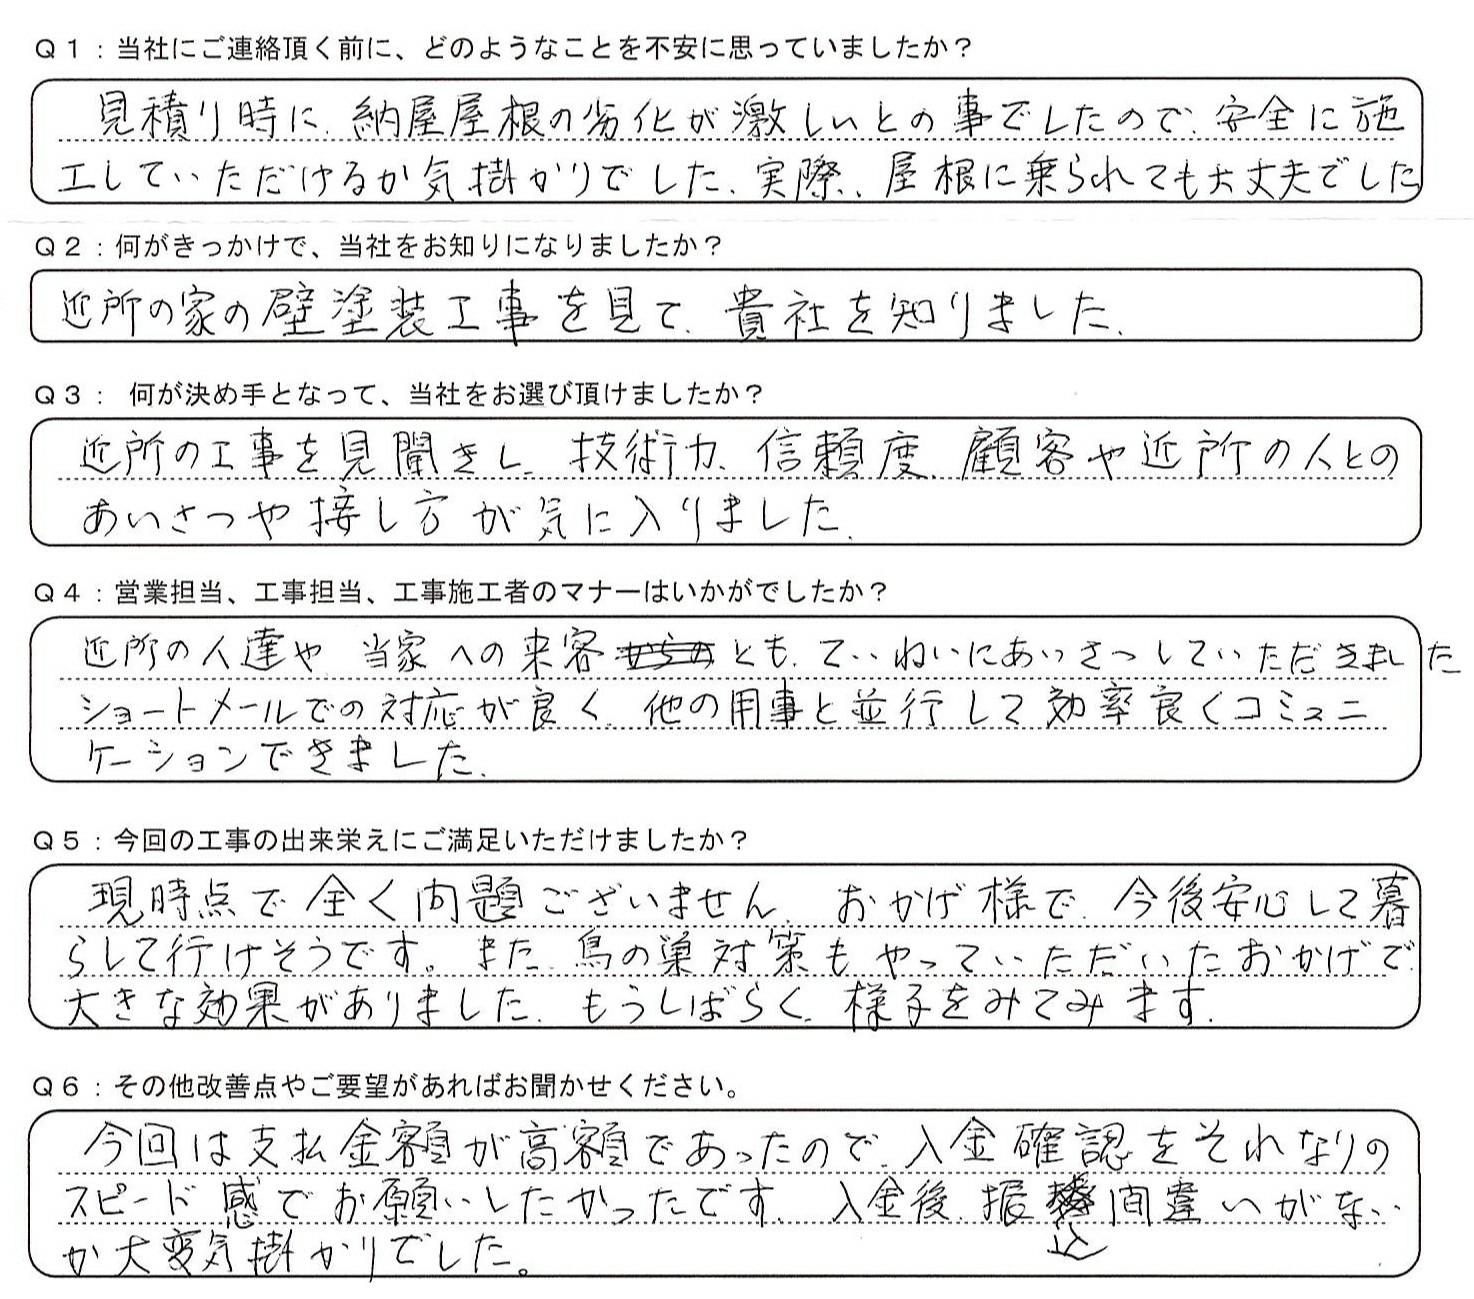 Q1：当社にご連絡頂く前に、どのようなことを不安に思っていましたか？
見積り時に、納屋屋根の劣化が激しいとの事でしたので、安全に施
工していただけるか気掛かりでした、実際、屋根に乗られても大丈夫でした
Q2：何がきっかけで、当社をお知りになりましたか？
近所の家の壁塗装工事を見て、貴社を知りました、
Q3： 何が決め手となって、当社をお選び頂けましたか？
近所の工事を見聞きし、技術力、信頼度、顧客や近所の人との
あいさつや接し方が気に入りました、
Q4：営業担当、工事担当、工事施工者のマナーはいかがでしたか？
近所の人達や 当家への来客とも、ていねいにあいさつしていただきました
ショートメールでの対応が良く、他の用事と並行して効率良くコミュニ
ケーションできました、
Q5：今回の工事の出来栄えにご満足いただけましたか？
現時点で全く問題ございません、おかげ様で、今後安心して暮
らして行けそうです。また、鳥の巣対策もやっていただいたおかげで
大きな効果がありました、もうしばらく、様子をみてみます、
Q6：その他改善点やご要望があればお聞かせください。
今回は支払金額が高額であったので、入金確認をそれなりの
スピード感でお願いしたかったです、入金後、振込間違いがない
か大変気掛かりでした。